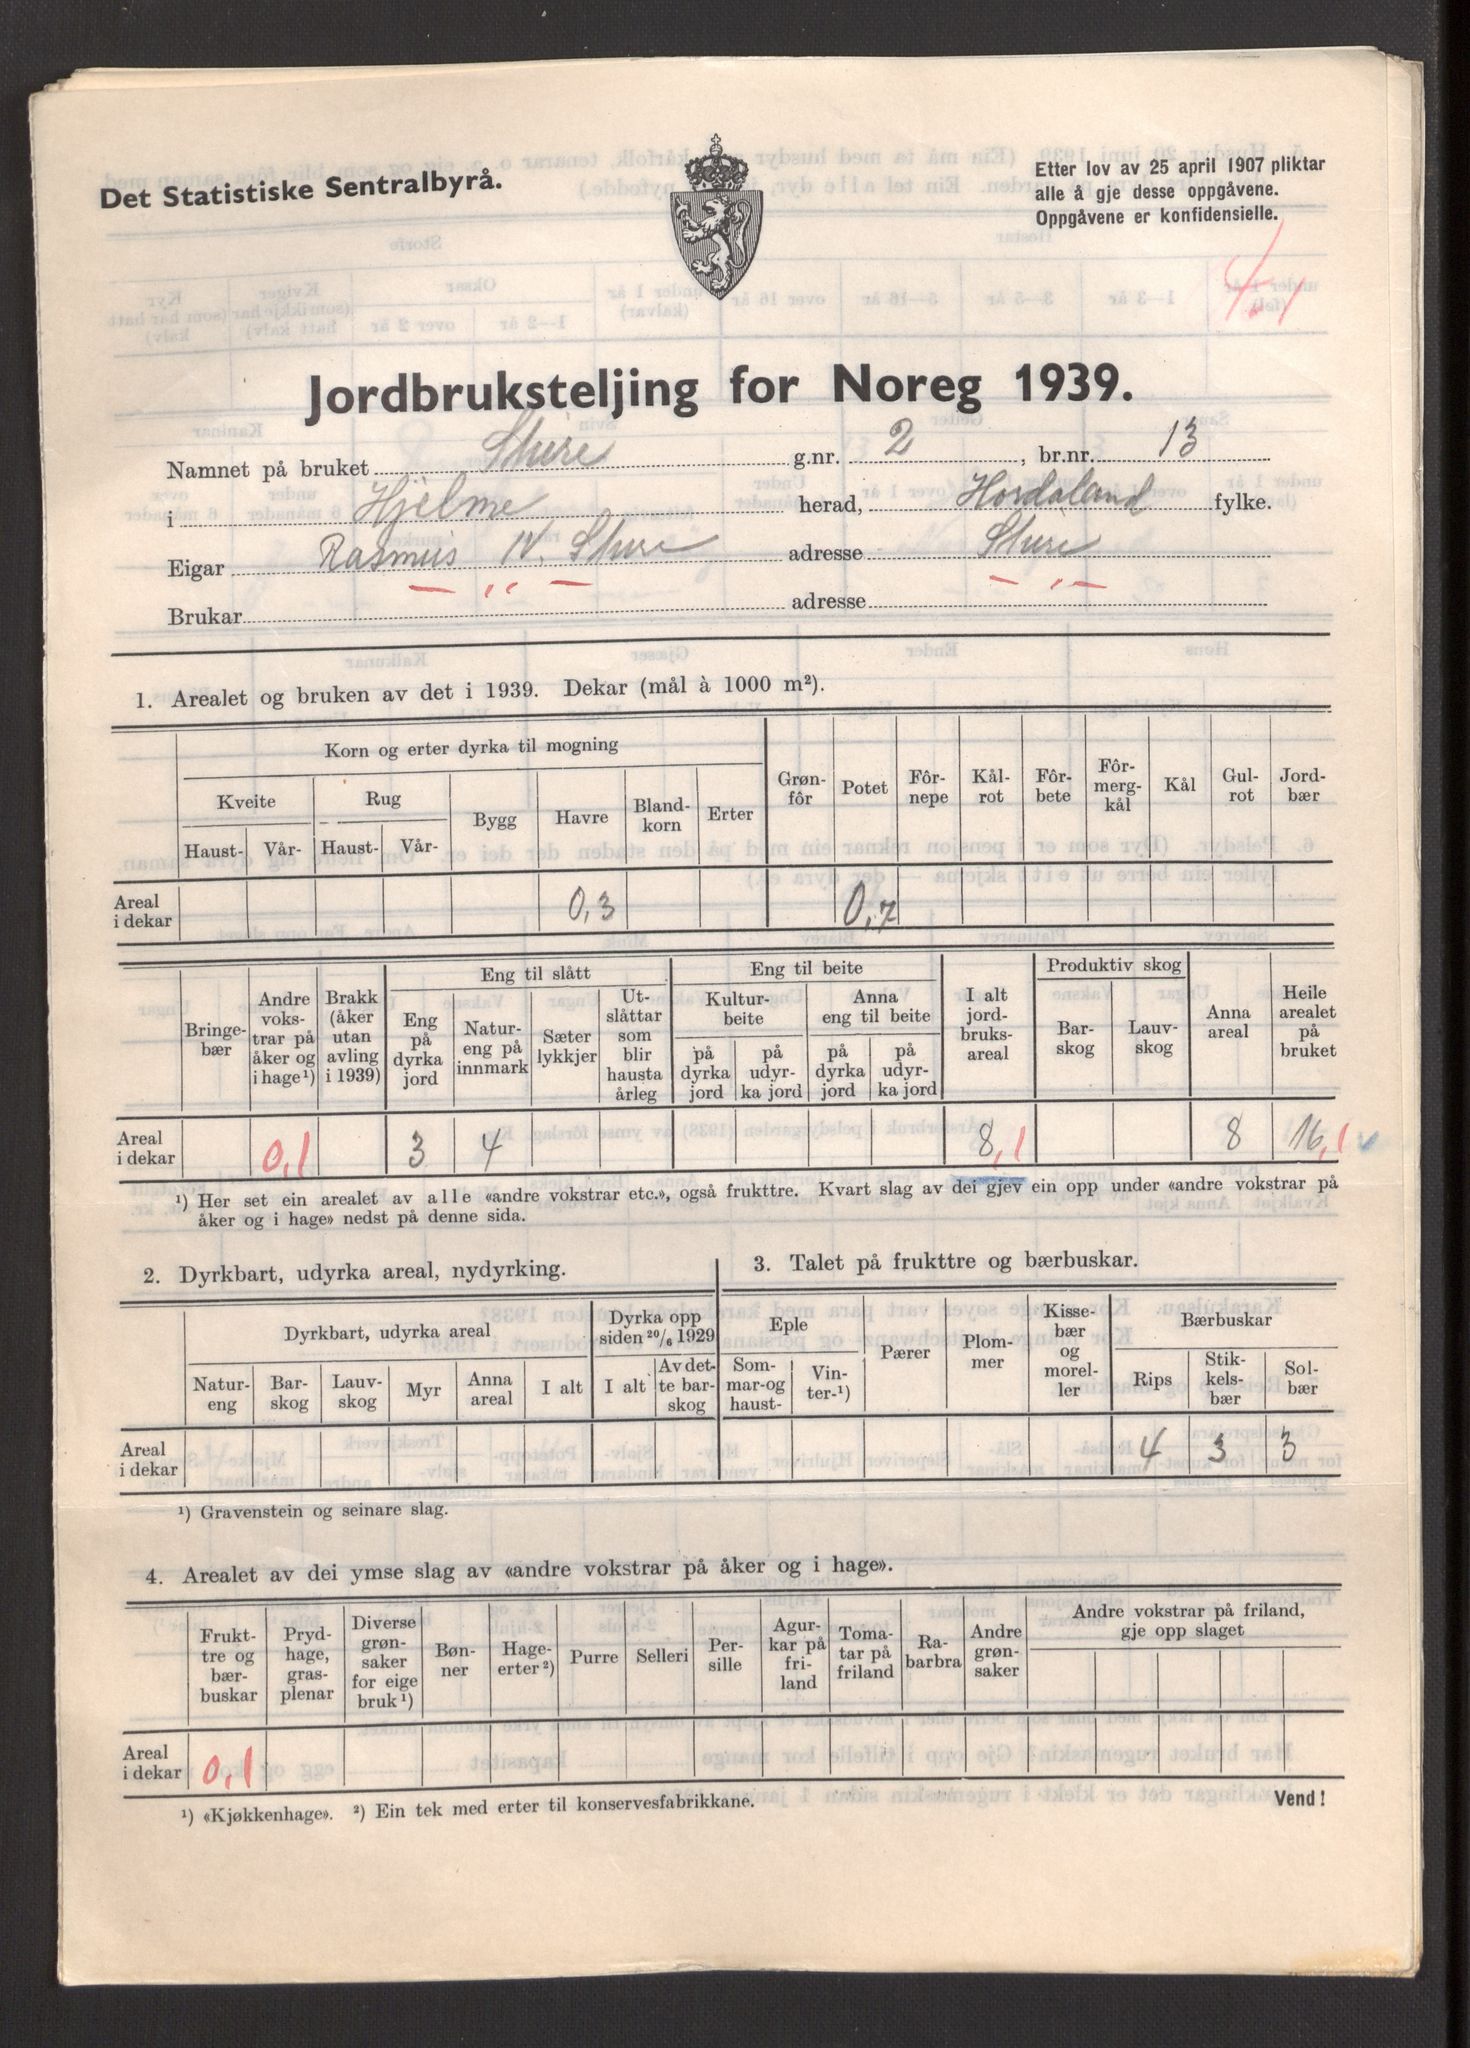 Det Statistiske Sentralbyrå.
Etter lov av 25 april 1907 pliktar
alle å gje desse oppgåvene.
Oppgåvene er konfidensielle.
Jordbruksteljing for Noreg 1939.
Namnet på bruket Sture g.nr. 2, br.nr. 13
i Hjelme herad, Hordaland fylke.
Eigar Rasmus N. Sture adresse Sture
Brukar — „ — adresse — „ —
1. Arealet og bruken av det i 1939. Dekar (mål à 1000 m²).
Korn og erter dyrka til mogning
Kveite Rug Bygg Havre Blandkorn Erter Grønfôr Potet Fôrnepe Kålrot Fôrbete Fôrmergkål Kål Gulrot Jordbær
Haust- Vår- Haust- Vår-
Areal i dekar 0,3 0,7
Eng til slått Eng til beite Produktiv skog
Bringebær Andre vokstrar på åker og i hage¹) Brakk (åker utan avling i 1939) Eng på dyrka jord Natureng på innmark Sæterlykkjer Utslåttar som blir hausta årleg Kulturbeite Anna eng til beite I alt jordbruksareal Barskog Lauvskog Anna areal Heile arealet på bruket
på dyrka jord på udyrka jord på dyrka jord på udyrka jord
Areal i dekar 0,1 3 4 8,1 8 16,1
¹) Her set ein arealet av alle «andre vokstrar etc.», også frukttre. Kvart slag av dei gjev ein opp under «andre vokstrar på
åker og i hage» nedst på denne sida.
2. Dyrkbart, udyrka areal, nydyrking.
Dyrkbart, udyrka areal Dyrka opp siden 20/6 1929
Natureng Barskog Lauvskog Myr Anna areal I alt I alt Av dette barskog
Areal i dekar
¹) Gravenstein og seinare slag.
3. Talet på frukttre og bærbuskar.
Eple Pærer Plommer Kissebær og moreller Bærbuskar
Sommar- og haust- Vinter-¹) Rips Stikkelsbær Solbær
4 3 3
4. Arealet av dei ymse slag av «andre vokstrar på åker og i hage».
Frukttre og bærbuskar Prydhage, grasplenar Diverse grønsaker for eige bruk¹) Bønner Hageerter²) Purre Selleri Persille Agurkar på friland Tomatar på friland Rabarbra Andre grønsaker Andre vokstrar på friland, gje opp slaget
Areal i dekar 0,1
¹) «Kjøkkenhage». ²) Ein tek med erter til konservesfabrikkane.
Vend!